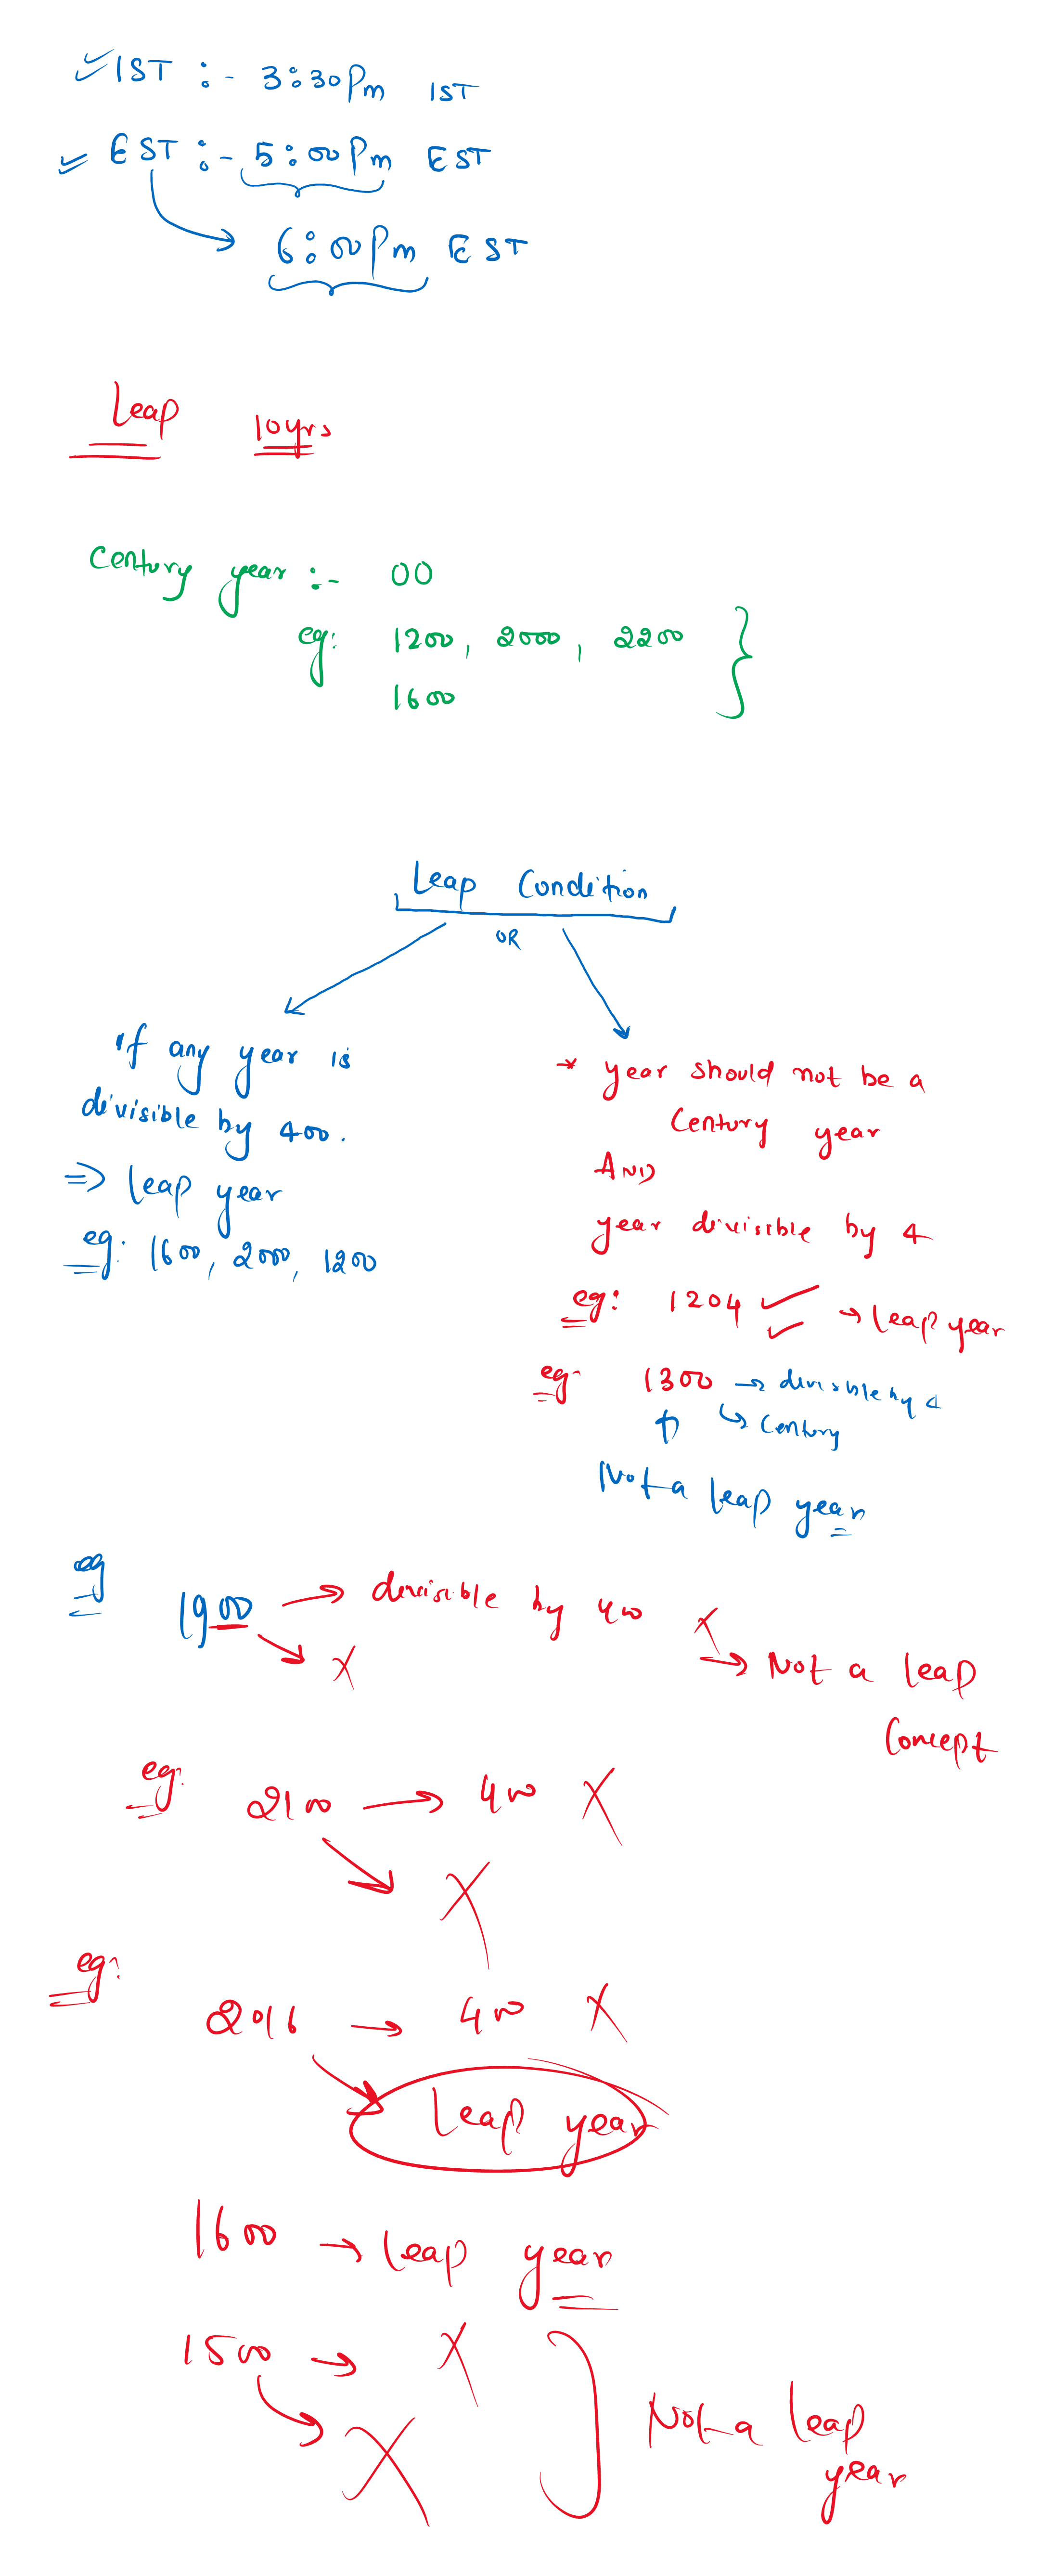 IST :- 3:30Pm IST
EST :- 5:00Pm EST
6:00Pm EST
Leap 10yrs
Century year :- 00
eg: 1200, 2000, 2200
1600
Leap Condition
OR
if any year is
divisible by 400.
=> leap year
eg: 1600, 2000, 1200
* year should not be a
Century year
AND
year divisible by 4
eg: 1204 → leap year
eg: 1300 → divisible by 4
↳ Century
Not a leap year
eg 1900 → divisible by 400 X
X → Not a leap
Concept
eg: 2100 → 400 X
X
eg:
2016 → 400 X
Leap year
1600 → leap year
1500 → X
X
Not a leap
year